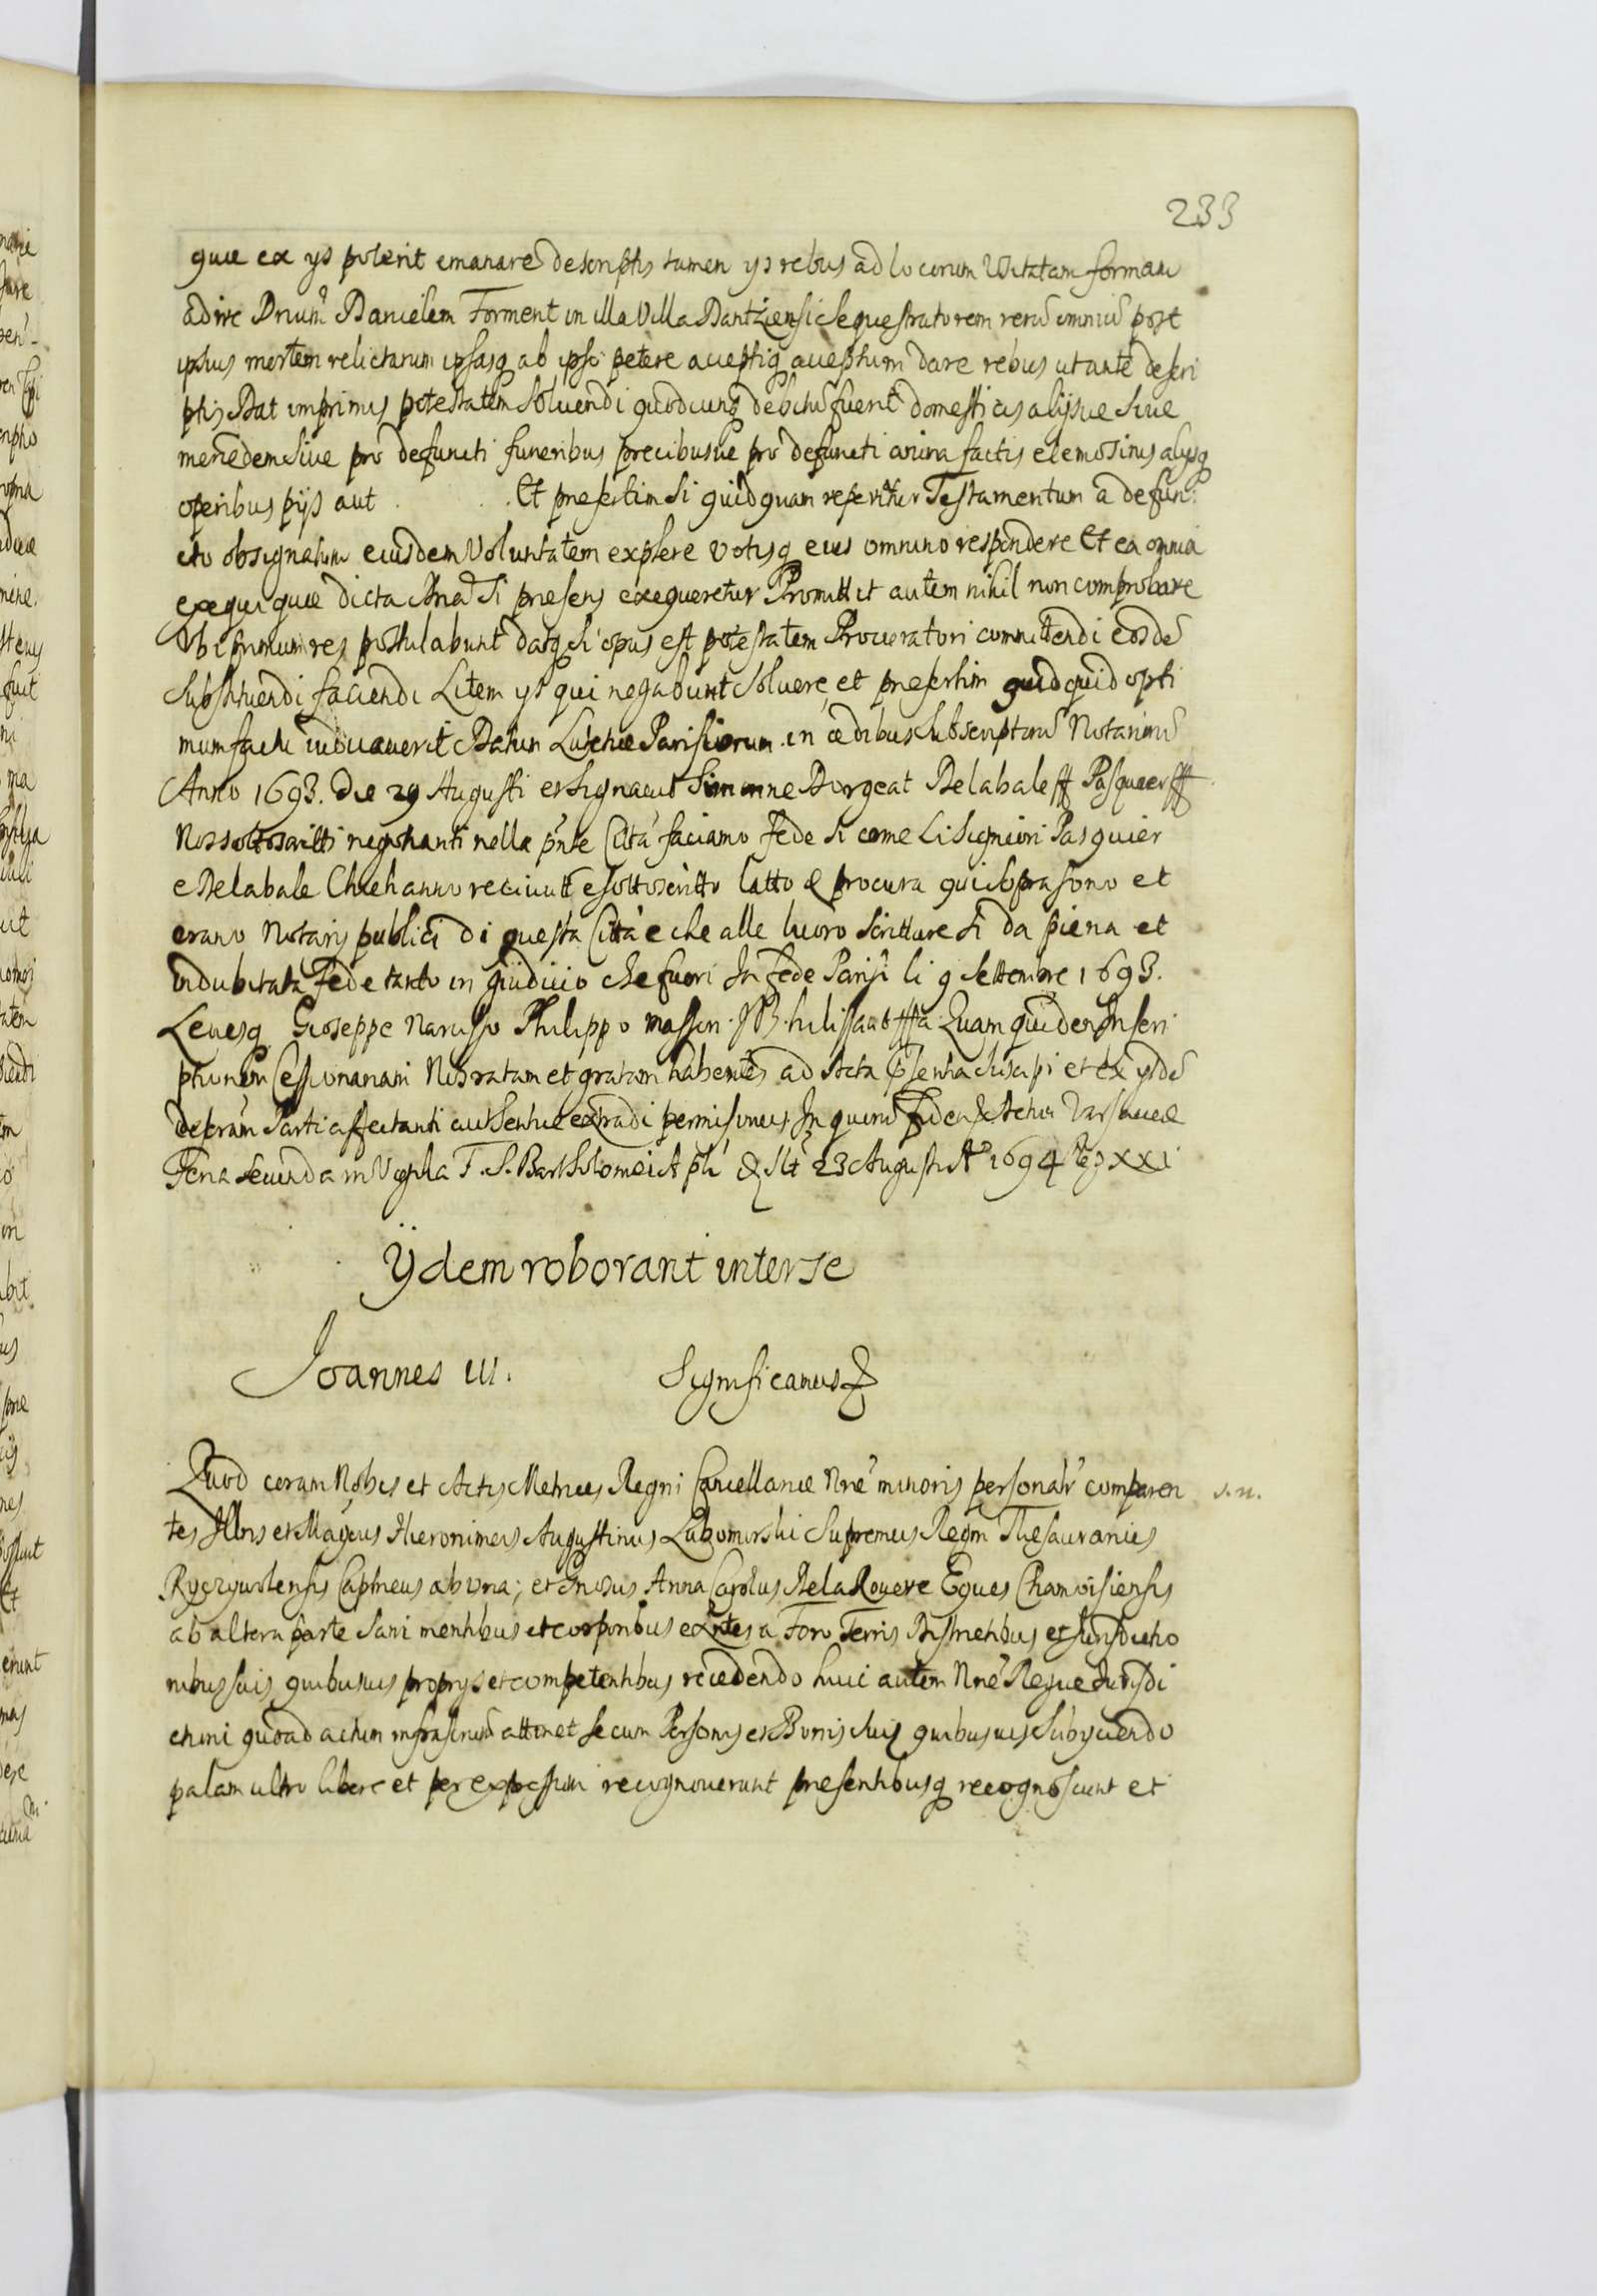 233
quæ ex ys poterit emanare descriptis tamen ys rebus ad locorum usitatam formam
adire Dnum Danielem Forment in illa Villa Dantziensi Sequestratorem rerũ omniũ post
ipsius mortem relictarum ipsasq ab ipso petere acceptiq acceptum dare rebus ut ante descri
ptis Dat imprimis potestatem Solvendi quodcunq debitũ fuerit domesticis alijsve Sive
mercedem Sive pro defuncti funeribus precibusve pro defuncti anima factis elemosinis alysq
operibus pijs aut . . . Et presertim Si quidquam reperitur Testamentum a defun:
cto obsignatum eiusdem Voluntatem explere votisq eius omnino respondere Et ea omnia
exequi quæ dicta Ana Si presens exequeretur Promittit autem nihil non comprobare
Ubi primum res postulabunt datq Si opus est potestatem Procuratori committendi eosdẽ
Substituendi faciendi Litem ys qui negabunt Solvere, et presertim quidquid opti
mum factu iudicaverit Datum Lutetiæ Parisiorum in ædibus Subscriptorũ Notariorũ
Anno 1693. Die 29 Augusti et Signavit Simonne Borgeat Delabale ff Pasquier ff
Nos sottoscritti negotianti nella pnte Città faciamo fede Si come Li Signiori Pasquier
e Delabale Che hanno recivutt e sottoscritto Latto d procura qui sopra sono et
erano Notarij publici di questa Città e che alle luoro Scritture Si da piena et
indubitata Fede tanto in giudicio che fuori In fede Parisi li 9 Settembre 1693.
Levesq Gioseppe Narusso Philippo Masson Quam quidem Inscri
ptionem Cessionariam Nos ratam et gratam habentes ad Acta pñtia Suscipi et ex ysdẽ
Parti affectanti authentice extradi permisimus In quorũ fidem & Actũ Varsaviæ
Feria Secunda in Vigilia F. S. Bartholomei Apli & Ilt 23 Augusti Aº 1694 Rg XXI
Ÿdem roborant inter se
Joannes III. Significamus &
Quod coram Nobis et Actis Metrices Regni Cancellariæ Nrẽ minoris personalr comparen s. n.
tes Illris et Magcus Hieronimus Augustinus Lubomirski Supremus Regni Thesaurarius
Ryczywolensis Capneus ab una; et Gnosus Anna Carolus Dela Rovere Eques Chamoisiensis
ab altera parte Sani mentibus et corporibus exntes a Foro Terris Districtibus et Jurisdictio
nibus Suis quibusvis proprys et competentibus recedendo huic autem Nrẽ Regiæ Jurisdi
ctioni quoad actum infrascriptũ attinet Se cum Personis et Bonis Suis quibusvis Subyciendo
palam ultro libere et per expressum recognoverunt presentibusq recognoscunt et